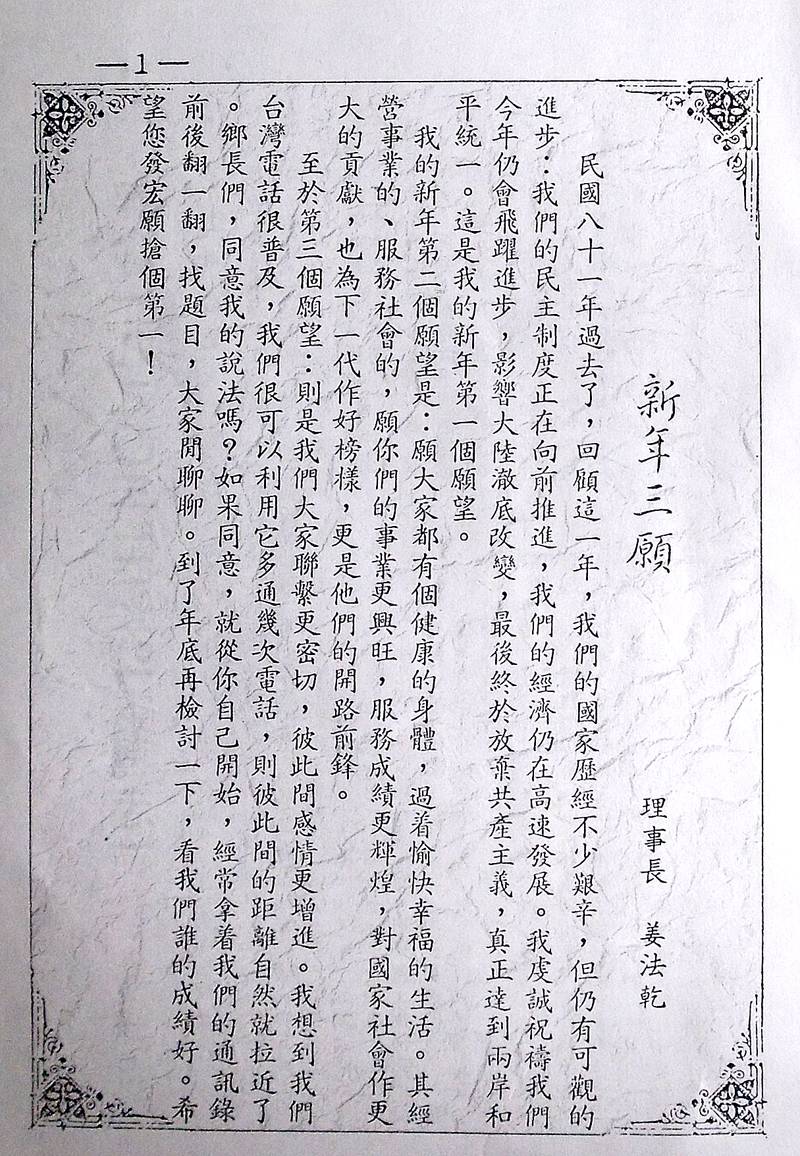 —1—
新年三願
理事長　姜法乾
民國八十一年過去了，回顧這一年，我們的國家歷經不少艱辛，但仍有可觀的
進步：我們的民主制度正在向前推進，我們的經濟仍在高速發展。我虔誠祝禱我們
今年仍會飛躍進步，影響大陸澈底改變，最後終於放棄共產主義，真正達到兩岸和
平統一。這是我的新年第一個願望。
我的新年第二個願望是：願大家都有個健康的身體，過着愉快幸福的生活。其經
營事業的、服務社會的，願你們的事業更興旺，服務成績更輝煌，對國家社會作更
大的貢獻，也為下一代作好榜樣，更是他們的開路前鋒。
至於第三個願望：則是我們大家聯繫更密切，彼此間感情更增進。我想到我們
台灣電話很普及，我們很可以利用它多通幾次電話，則彼此間的距離自然就拉近了
。鄉長們，同意我的說法嗎？如果同意，就從你自己開始，經常拿着我們的通訊錄
前後翻一翻，找題目，大家閒聊聊。到了年底再檢討一下，看我們誰的成績好。希
望您發宏願搶個第一！